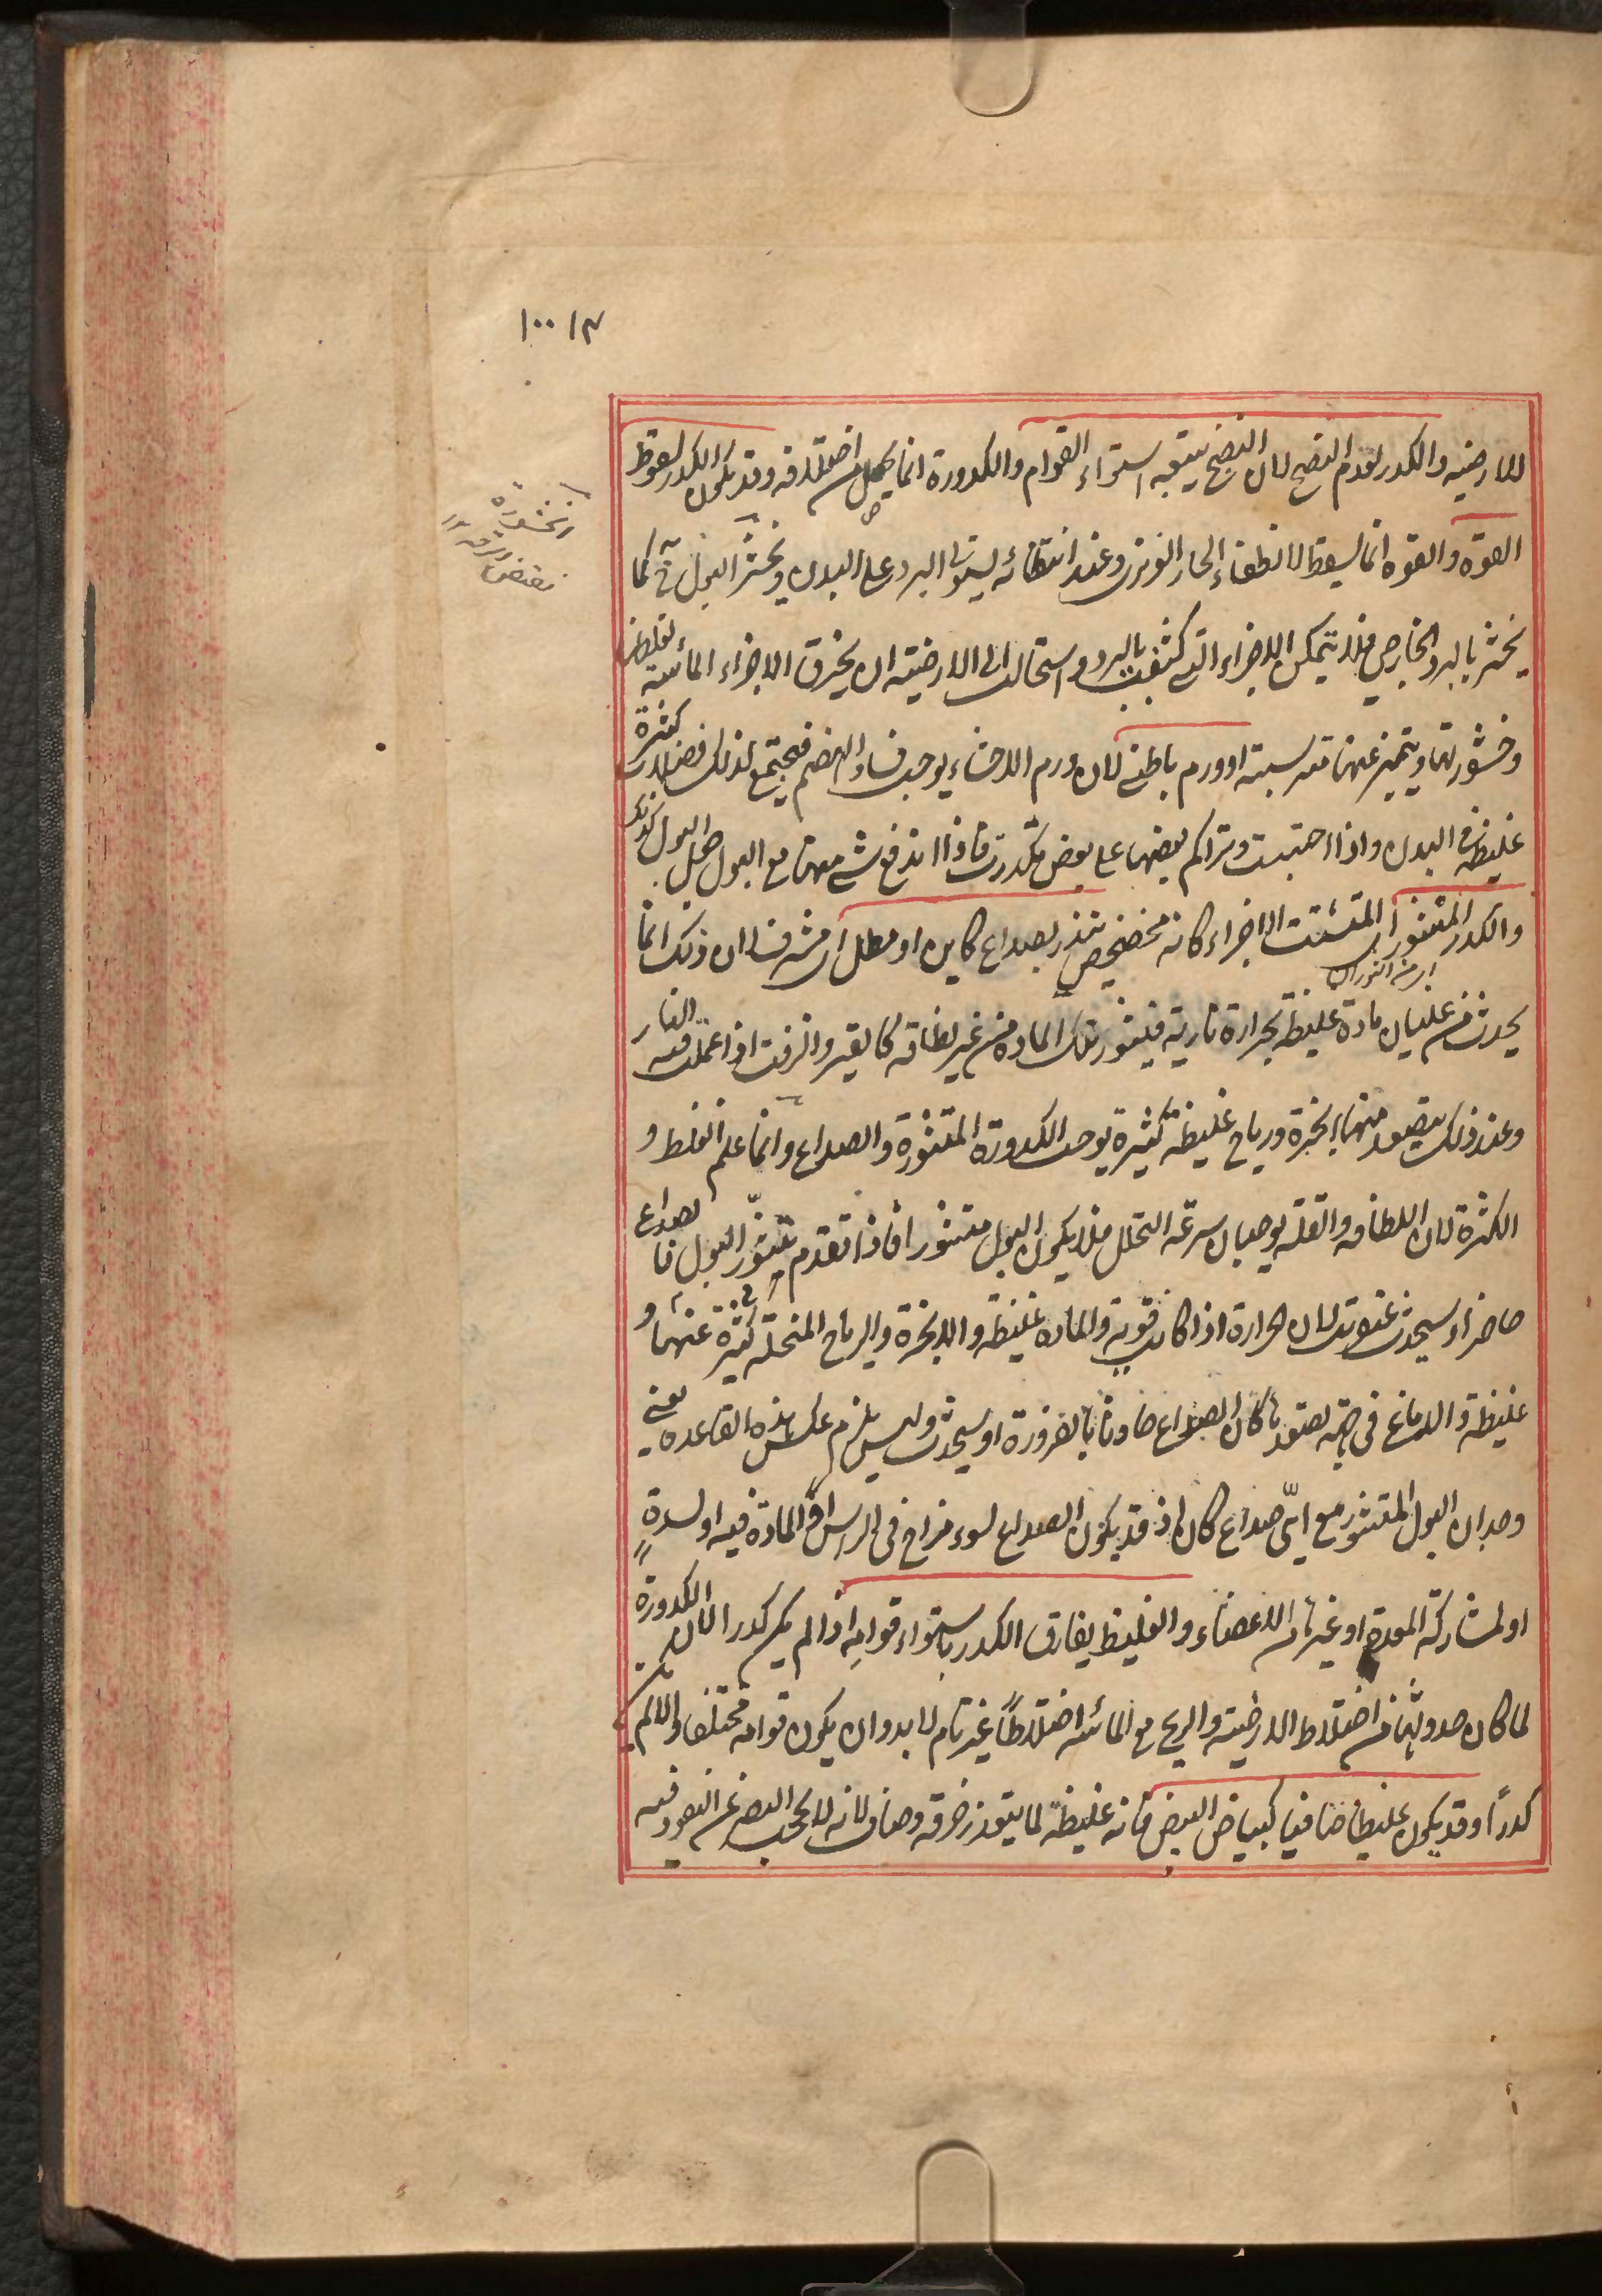 ١٠٠١٣
للارضيه والكدر لعدم النضج لان النضج يتبعه استواء القوام والكدورة انما يحصل من اختلافه وقد يكون الكدر لسقوط
القوة والقوه انما يسقط لانطفاء الحار الغريزى وعند انتطفائه يستولى البرد على البدن ويخثر البول كما
يخثر بالبرد الخارجى فلا يتمكن الاجزاء التى كثفت بالبرد واستحالت الى الارضيته ان يخرق الاجزاء المائيه لغلظها
وخثورتها ويتميز عنها مترسبته او ورم باطنى لان ورم الاحشاء يوجب فساد الهضم فيجتمع لذلك فضلات كثيرة
غليظه فى البدن واذا احتبست وتراكم بعضها على بعض تكدرت فاذا اندفع شى منها مع البول جعل البول كذلك
والكدر المتثور اى المتشتت الاجزاء كانه مخضخض ينذر بصداع كاين او مطل اى مشرف الا ان ذلك انما
اى من الثوران
يحدث من غليان مادة غليظه بحرارة نارية فيتثور تلك المادة من غير لطافه كالقير والزفت اذا عملت فيه النار
وعند ذلك يتصعد منها ابخرة ورياح غليظة كثيرة يوجب الكدورة المتثورة والصداع وانما علم الغلظ و
الكثرة لان اللطافه والقله يوجبان سرعة التحلل فلا يكون البول متثورا فاذا تقدم تثور البول فالصداع
حاضر او سيحدث عنقريب لان الحرارة اذا كانت قويه والماده غليظه والابخرة والرياح المنحله عنها كثيرة و
غليظة والدماغ فى جهة تصعدها كان الصداع حادثا بالضرورة او سيحدث وليس يلزم عكس هذه القاعده يعنى
وجدان البول المتثور مع اىّ صداع كان اذ قد يكون الصداع لسوء مزاج فى الراس او المادة فيه او لسدة
او لمشاركة المعدة او غيرها من الاعضاء والغليظ يفارق الكدر باستواء قوامِه اذا لم يكن كدرا لان الكدورة
لما كان حدوثها من اختلاط الارضيته والريح مع المائيه اختلاطاً غير تام لابد وان يكون قوامه مختلفا والا لم يكن
كدراً وقد يكون غليظا صافيا كبياض البيض فانه غليظة لما يتعذر خرقه وصاف لانه لا يحجب البصر عن النفوذ فيه